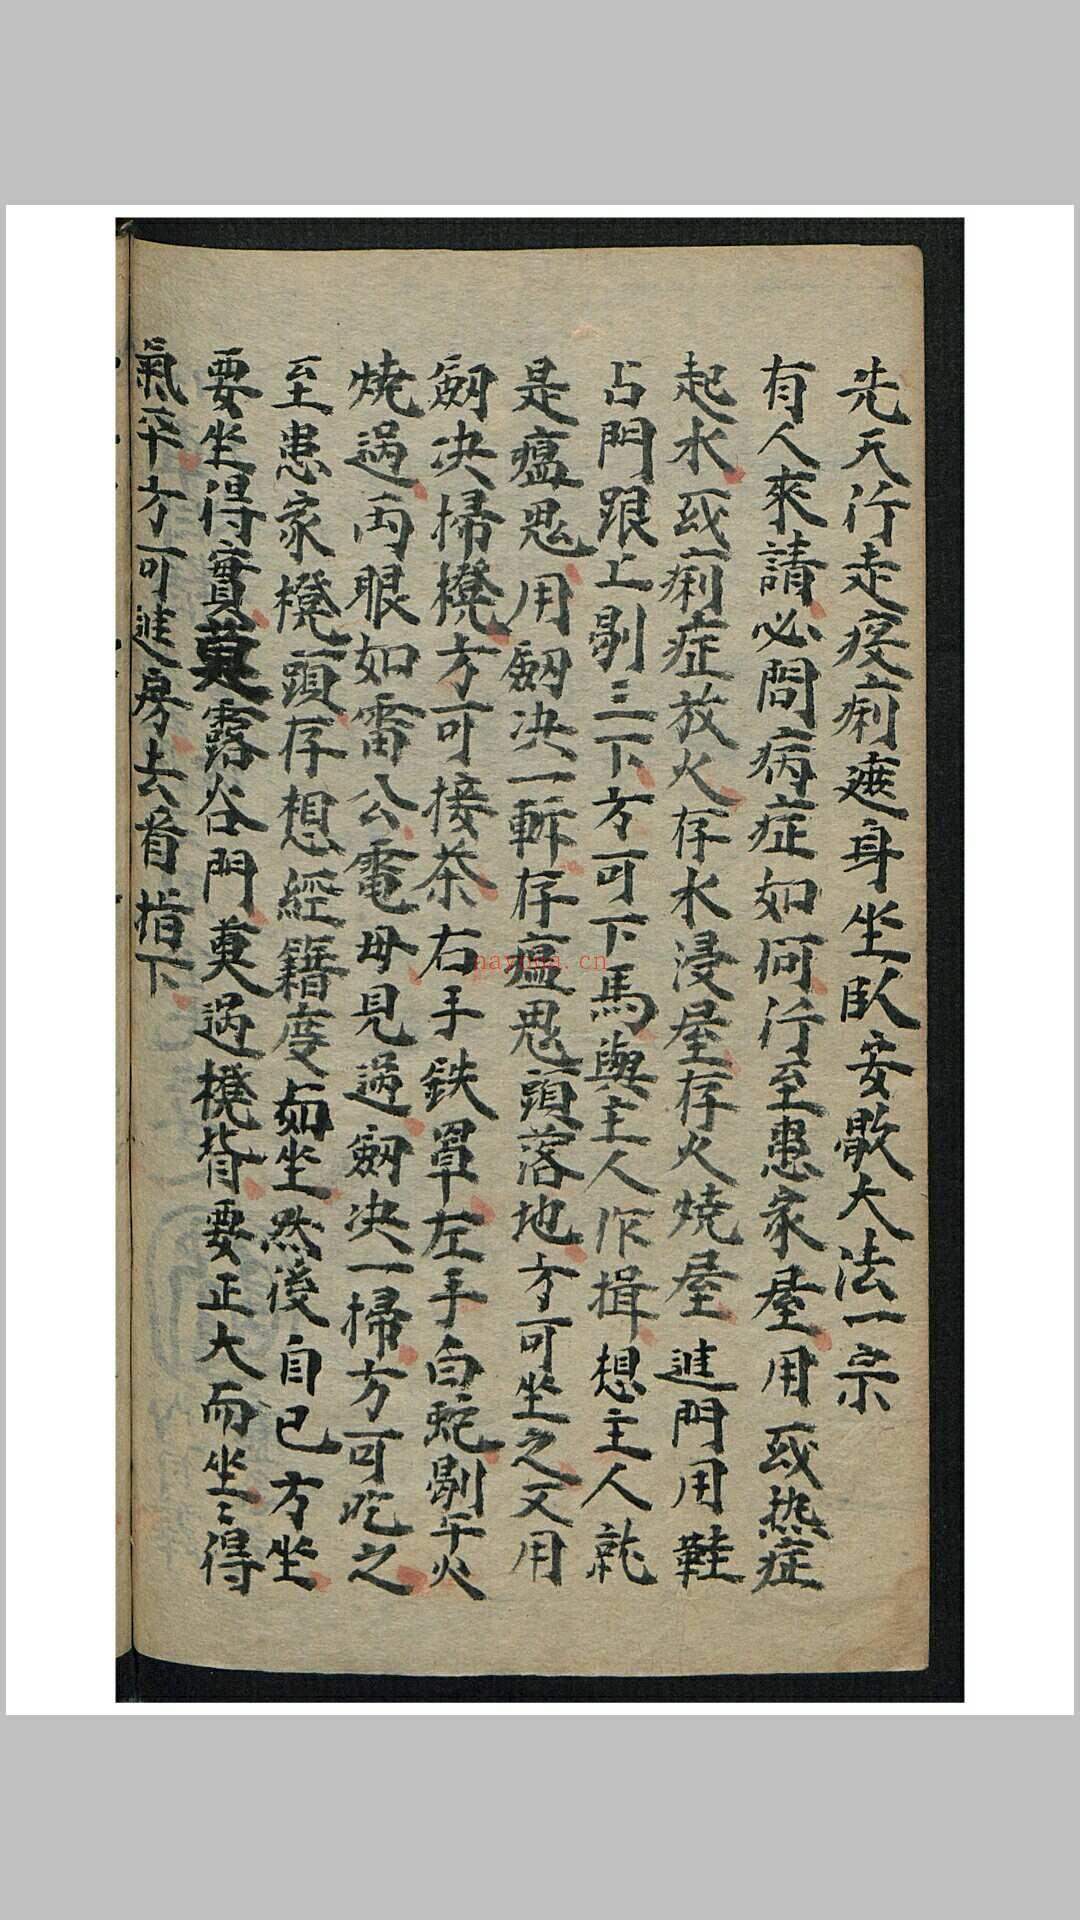 先天行走疫痢遮身坐臥安散大法一宗
有人來請必問病症如何行至患家屋用或热症
起水或痢症放火存水浸屋存火燒屋進門用鞋
占門跟上剔三下方可下馬與主人作揖想主人就
是瘟鬼用劍决一斬存瘟鬼頭落地方可坐之又用
劍决掃櫈方可接茶右手鉄罩左手白蛇剔午火
燒過両眼如雷公電毋見過劍决一掃方可吃之
至患家櫈頭存想經籍度如坐然後自已方坐
要坐得實莫露谷門莫過櫈背要正大而坐〻得
氣平方可進房去看指下
nayona.cn